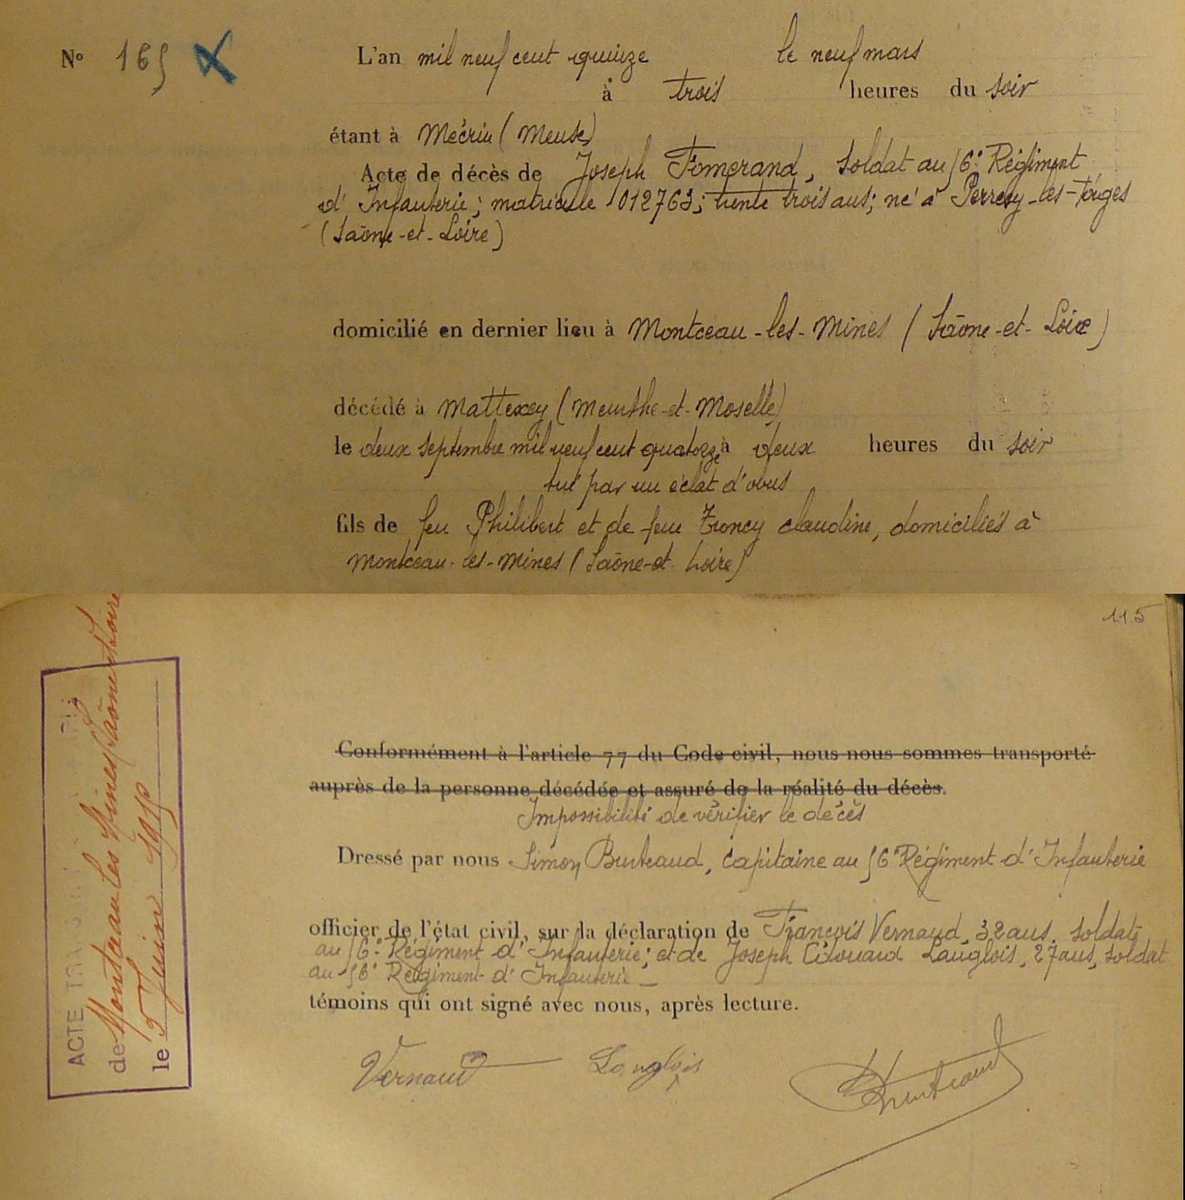 N° 165 L'an mil neuf cent quinze le neuf mars
à trois heures du soir
étant à Mécrin (Meuse)
Acte de décès de Joseph Fomerand, soldat au 56e Régiment
d'Infanterie; matricule 012763; trente trois ans; né à Perrecy-les-Forges
(Saône-et-Loire)
domicilié en dernier lieu à Montceau-les-Mines (Saône-et-Loire)
décédé à Mattexey (Meurthe-et-Moselle)
le deux septembre mil neuf cent quatorze à deux heures du soir
tué par un éclat d'obus
fils de feu Philibert et de feue Troncy Claudine, domiciliés à
Montceau-les-Mines (Saône-et-Loire)
115
ACTE
de Montceau les Mines Saône et Loire
le 5 Juin 1915
Conformément à l'article 77 du Code civil, nous nous sommes transporté
auprès de la personne décédée et assuré de la réalité du décès.
Impossibilité de vérifier le décès
Dressé par nous Simon Bruteaud, Capitaine au 56e Régiment d'Infanterie
officier de l'état civil, sur la déclaration de François Vernaud, 32 ans, soldat
au 56e Régiment d'Infanterie; et de Joseph Edouard Langlois, 27 ans, soldat
au 56e Régiment d'Infanterie
témoins qui ont signé avec nous, après lecture.
Vernaud Langlois Bruteaud